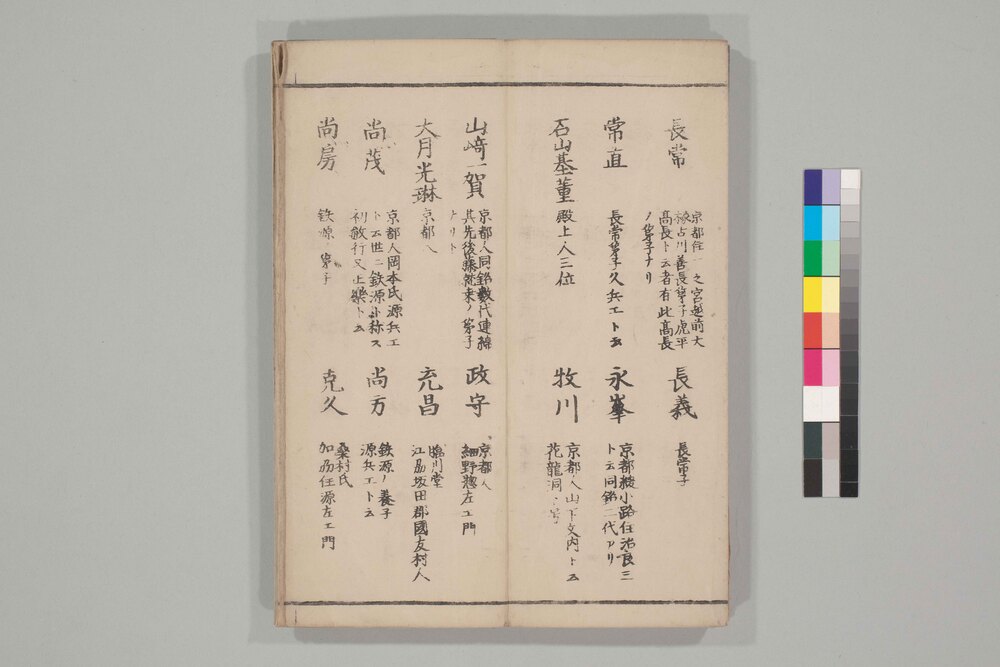 長常
京都住一之宮越前大
掾占川善長弟子虎平
高長ト云者有此高長
ノ弟子ナリ
長義
長常子
常直
長常弟子久兵エト云
永峯
京都綾小路住治良三
ト云同銘二代アリ
石山基董
殿上人三位
牧川
京都人山下文内ト云
花龍洞ト号
山﨑一賀
京都人同銘数代連綿
其先後藤ノ弟子
ナリト
政守
京都人
細野惣左エ門
大月光琳
京都人
充昌
臨川堂
江州坂田郡國友村人
尚茂
京都人岡本氏源兵エ
ト云世ニ鉄源ト称ス
初敏行又止楽ト云
尚方
鉄源ノ養子
源兵エト云
尚房
鉄源ノ弟子
克久
桑村氏
加州住源左エ門